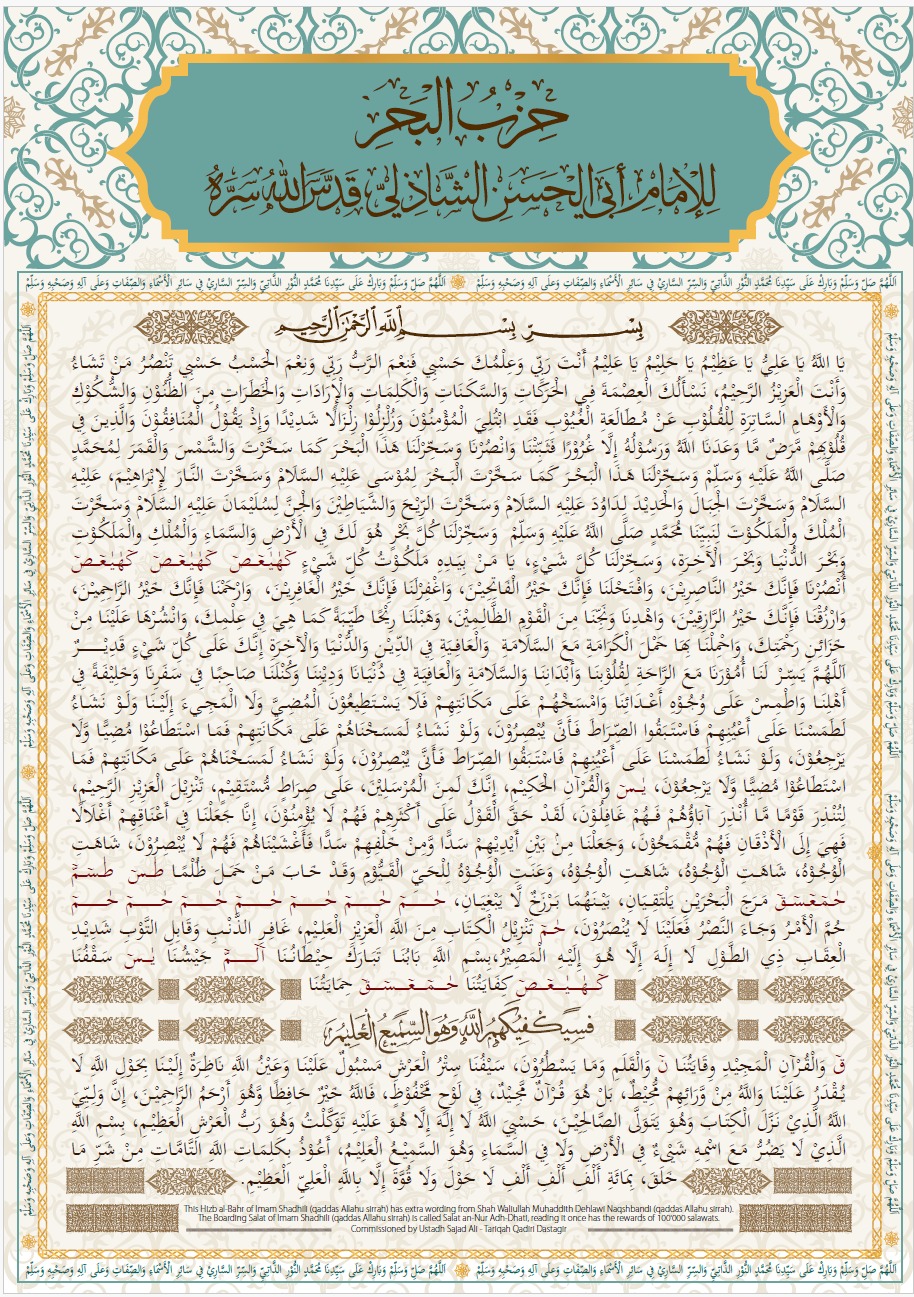 حِزْبُ الْبَحْرِ
لِلْإِمَامِ أَبِي الْحَسَنِ الشَّاذِلِيِّ قَدَّسَ اللهُ سِرَّهُ
اَللّٰهُمَّ صَلِّ وَسَلِّمْ وَبَارِكْ عَلَى سَيِّدِنَا مُحَمَّدٍ النُّوْرِ الذَّاتِيِّ وَالسِّرِّ السَّارِيْ فِي سَائِرِ الْأَسْمَاءِ وَالصِّفَاتِ وَعَلَى آلِهِ وَصَحْبِهِ وَسَلِّمْ
اَللّٰهُمَّ صَلِّ وَسَلِّمْ وَبَارِكْ عَلَى سَيِّدِنَا مُحَمَّدٍ النُّوْرِ الذَّاتِيِّ وَالسِّرِّ السَّارِيْ فِي سَائِرِ الْأَسْمَاءِ وَالصِّفَاتِ وَعَلَى آلِهِ وَصَحْبِهِ وَسَلِّمْ
بِسْـــرِّ بِسْـــمِ اللهِ الرَّحْمٰنِ الرَّحِيمِ
يَا اللهُ يَا عَلِيُّ يَا عَظِيْمُ يَا حَلِيْمُ يَا عَلِيْمُ أَنْتَ رَبِّي وَعِلْمُكَ حَسْبِي فَنِعْمَ الرَّبُّ رَبِّي وَنِعْمَ الْحَسْبُ حَسْبِي تَنْصُرُ مَنْ تَشَاءُ
وَأَنْتَ الْعَزِيْزُ الرَّحِيْمُ، نَسْأَلُكَ الْعِصْمَةَ فِي الْحَرَكَاتِ وَالسَّكَنَاتِ وَالْكَلِمَاتِ وَالْإِرَادَاتِ وَالْخَطَرَاتِ مِنَ الظُّنُوْنِ وَالشُّكُوْكِ
وَالْأَوْهَامِ السَّاتِرَةِ لِلْقُلُوْبِ عَنْ مُطَالَعَةِ الْغُيُوْبِ فَقَدِ ابْتُلِيَ الْمُؤْمِنُوْنَ وَزُلْزِلُوْا زِلْزَالًا شَدِيْدًا وَإِذْ يَقُوْلُ الْمُنَافِقُوْنَ وَالَّذِينَ فِي
قُلُوْبِهِمْ مَّرَضٌ مَّا وَعَدَنَا اللهُ وَرَسُوْلُهُ إِلَّا غُرُوْرًا فَثَبِّتْنَا وَانْصُرْنَا وَسَخِّرْلَنَا هَذَا الْبَحْرَ كَمَا سَخَّرْتَ وَالشَّمْسَ وَالْقَمَرَ لِمُحَمَّدٍ
صَلَّى اللهُ عَلَيْهِ وَسَلَّمْ وَسَخِّرْلَنَا هَذَا الْبَحْرَ كَمَا سَخَّرْتَ الْبَحْرَ لِمُوْسَى عَلَيْهِ السَّلَامْ وَسَخَّرْتَ النَّارَ لِإِبْرَاهِيْمَ، عَلَيْهِ
السَّلَامْ وَسَخَّرْتَ الْجِبَالَ وَالْحَدِيْدَ لِدَاوُدَ عَلَيْهِ السَّلَامْ وَسَخَّرْتَ الرِّيْحَ وَالشَّيَاطِيْنَ وَالْجِنَّ لِسُلَيْمَانَ عَلَيْهِ السَّلَامْ وَسَخَّرْتَ
الْمُلْكَ وَالْمَلَكُوْتَ لِنَبِيِّنَا مُحَمَّدٍ صَلَّى اللهُ عَلَيْهِ وَسَلَّمْ وَسَخِّرْلَنَا كُلَّ بَحْرٍ هُوَ لَكَ فِي الْأَرْضِ وَالسَّمَاءِ وَالْمُلْكِ وَالْمَلَكُوْتِ
وَبَحْرَ الدُّنْيَا وَبَحْرَ الْآخِرَةِ، وَسَخِّرْلَنَا كُلَّ شَيْءٍ، يَا مَنْ بِيَدِهِ مَلَكُوْتُ كُلِّ شَيْءٍ كٓهٰيٰعٓصٓ كٓهٰيٰعٓصٓ كٓهٰيٰعٓصٓ
أُنْصُرْنَا فَإِنَّكَ خَيْرُ النَّاصِرِيْنَ، وَافْتَحْلَنَا فَإِنَّكَ خَيْرُ الْفَاتِحِيْنَ، وَاغْفِرْلَنَا فَإِنَّكَ خَيْرُ الْغَافِرِيْنَ، وَارْحَمْنَا فَإِنَّكَ خَيْرُ الرَّاحِمِيْنَ،
وَارْزُقْنَا فَإِنَّكَ خَيْرُ الرَّازِقِيْنَ، وَاهْدِنَا وَنَجِّنَا مِنَ الْقَوْمِ الظَّالِمِيْنَ، وَهَبْلَنَا رِيْحًا طَيِّبَةً كَمَا هِيَ فِي عِلْمِكَ، وَانْشُرْهَا عَلَيْنَا مِنْ
خَزَائِنِ رَحْمَتِكَ، وَاحْمِلْنَا بِهَا حَمْلَ الْكَرَامَةِ مَعَ السَّلَامَةِ وَالْعَافِيَةِ فِي الدِّيْنِ وَالدُّنْيَا وَالْآخِرَةِ إِنَّكَ عَلَى كُلِّ شَيْءٍ قَدِيْـــرٌ
اَللّٰهُمَّ يَسِّرْ لَنَا أُمُوْرَنَا مَعَ الرَّاحَةِ لِقُلُوْبِنَا وَأَبْدَانِنَا وَالسَّلَامَةِ وَالْعَافِيَةِ فِي دُنْيَانَا وَدِيْنِنَا وَكُنْلَنَا صَاحِبًا فِي سَفَرِنَا وَخَلِيْفَةً فِي
أَهْلِنَا وَاطْمِسْ عَلَى وُجُوْهِ أَعْدَائِنَا وَامْسَخْهُمْ عَلَى مَكَانَتِهِمْ فَلَا يَسْتَطِيعُوْنَ الْمُضِيَّ وَلَا الْمَجِيْءَ إِلَيْنَا وَلَوْ نَشَاءُ
لَطَمَسْنَا عَلَى أَعْيُنِهِمْ فَاسْتَبَقُوا الصِّرَاطَ فَأَنَّى يُبْصِرُوْنَ، وَلَوْ نَشَاءُ لَمَسَخْنَاهُمْ عَلَى مَكَانَتِهِمْ فَمَا اسْتَطَاعُوْا مُضِيًّا وَّلَا
يَرْجِعُوْنَ، وَلَوْ نَشَاءُ لَطَمَسْنَا عَلَى أَعْيُنِهِمْ فَاسْتَبَقُوا الصِّرَاطَ فَأَنَّى يُبْصِرُوْنَ، وَلَوْ نَشَاءُ لَمَسَخْنَاهُمْ عَلَى مَكَانَتِهِمْ فَمَا
اسْتَطَاعُوْا مُضِيًّا وَّلَا يَرْجِعُوْنَ، يٰسٓ وَالْقُرْآنِ الْحَكِيْمِ، إِنَّكَ لَمِنَ الْمُرْسَلِيْنَ، عَلَى صِرَاطٍ مُّسْتَقِيْمٍ، تَنْزِيْلَ الْعَزِيْزِ الرَّحِيْمِ،
لِتُنْذِرَ قَوْمًا مَّا أُنْذِرَ آبَاؤُهُمْ فَهُمْ غَافِلُوْنَ، لَقَدْ حَقَّ الْقَوْلُ عَلَى أَكْثَرِهِمْ فَهُمْ لَا يُؤْمِنُوْنَ، إِنَّا جَعَلْنَا فِي أَعْنَاقِهِمْ أَغْلَالًا
فَهِيَ إِلَى الْأَذْقَانِ فَهُمْ مُّقْمَحُوْنَ، وَجَعَلْنَا مِنْ بَيْنِ أَيْدِيْهِمْ سَدًّا وَّمِنْ خَلْفِهِمْ سَدًّا فَأَغْشَيْنَاهُمْ فَهُمْ لَا يُبْصِرُوْنَ، شَاهَتِ
الْوُجُوْهُ، شَاهَتِ الْوُجُوْهُ، شَاهَتِ الْوُجُوْهُ، وَعَنَتِ الْوُجُوْهُ لِلْحَيِّ الْقَيُّوْمِ وَقَدْ خَابَ مَنْ حَمَلَ ظُلْمًا طٰسٓ طٰسٓمٓ
حٰمٓعٓسٓقٓ مَرَجَ الْبَحْرَيْنِ يَلْتَقِيَانِ، بَيْنَهُمَا بَرْزَخٌ لَّا يَبْغِيَانِ، حٰـــمٓ حٰـــمٓ حٰـــمٓ حٰـــمٓ حٰـــمٓ حٰـــمٓ حٰـــمٓ
حُمَّ الْأَمْرُ وَجَاءَ النَّصْرُ فَعَلَيْنَا لَا يُنْصَرُوْنَ، حٰمٓ تَنْزِيْلُ الْكِتَابِ مِنَ اللهِ الْعَزِيْزِ الْعَلِيْمِ، غَافِرِ الذَّنْبِ وَقَابِلِ التَّوْبِ شَدِيْدِ
الْعِقَابِ ذِي الطَّوْلِ لَا إِلَهَ إِلَّا هُوَ إِلَيْهِ الْمَصِيْرُ، بِسْمِ اللهِ بَابُنَا تَبَارَكَ حِيْطَانُنَا آلٓـــمٓ جَيْشُنَا يٰسٓ سَقْفُنَا
كٓـهٰـيٰـعٓـصٓ كِفَايَتُنَا حٰـمٓـعٓـسٓـقٓ حِمَايَتُنَا
فَسَيَكْفِيكَهُمُ اللهُ وَهُوَ السَّمِيعُ الْعَلِيمُ
قٓ وَالْقُرْآنِ الْمَجِيْدِ وِقَايَتُنَا نٓ وَالْقَلَمِ وَمَا يَسْطُرُوْنَ، سَيْفُنَا سِتْرُ الْعَرْشِ مَسْبُولٌ عَلَيْنَا وَعَيْنُ اللهِ نَاظِرَةٌ إِلَيْنَا بِحَوْلِ اللهِ لَا
يُقْدَرُ عَلَيْنَا وَاللهُ مِنْ وَّرَائِهِمْ مُّحِيْطٌ، بَلْ هُوَ قُرْآنٌ مَّجِيْدٌ، فِي لَوْحٍ مَّحْفُوْظٍ، فَاللهُ خَيْرٌ حَافِظًا وَّهُوَ أَرْحَمُ الرَّاحِمِيْنَ، إِنَّ وَلِيِّيَ
اللهُ الَّذِيْ نَزَّلَ الْكِتَابَ وَهُوَ يَتَوَلَّى الصَّالِحِيْنَ، حَسْبِيَ اللهُ لَا إِلَهَ إِلَّا هُوَ عَلَيْهِ تَوَكَّلْتُ وَهُوَ رَبُّ الْعَرْشِ الْعَظِيْمِ، بِسْمِ اللهِ
الَّذِيْ لَا يَضُرُّ مَعَ اسْمِهِ شَيْءٌ فِي الْأَرْضِ وَلَا فِي السَّمَاءِ وَهُوَ السَّمِيْعُ الْعَلِيْمُ، أَعُوْذُ بِكَلِمَاتِ اللهِ التَّامَّاتِ مِنْ شَرِّ مَا
خَلَقَ، بِمَائَةِ أَلْفِ أَلْفِ أَلْفِ لَا حَوْلَ وَلَا قُوَّةَ إِلَّا بِاللهِ الْعَلِيِّ الْعَظِيْمِ.
This Hizb al-Bahr of Imam Shadhili (qaddas Allahu sirrah) has extra wording from Shah Waliullah Muhaddith Dehlawi Naqshbandi (qaddas Allahu sirrah).
The Boarding Salat of Imam Shadhili (qaddas Allahu sirrah) is called Salat an-Nur Adh-Dhati, reading it once has the rewards of 100'000 salawats.
Commissioned by Ustadh Sajad Ali - Tariqah Qadiri Dastagir
اَللّٰهُمَّ صَلِّ وَسَلِّمْ وَبَارِكْ عَلَى سَيِّدِنَا مُحَمَّدٍ النُّوْرِ الذَّاتِيِّ وَالسِّرِّ السَّارِيْ فِي سَائِرِ الْأَسْمَاءِ وَالصِّفَاتِ وَعَلَى آلِهِ وَصَحْبِهِ وَسَلِّمْ
اَللّٰهُمَّ صَلِّ وَسَلِّمْ وَبَارِكْ عَلَى سَيِّدِنَا مُحَمَّدٍ النُّوْرِ الذَّاتِيِّ وَالسِّرِّ السَّارِيْ فِي سَائِرِ الْأَسْمَاءِ وَالصِّفَاتِ وَعَلَى آلِهِ وَصَحْبِهِ وَسَلِّمْ